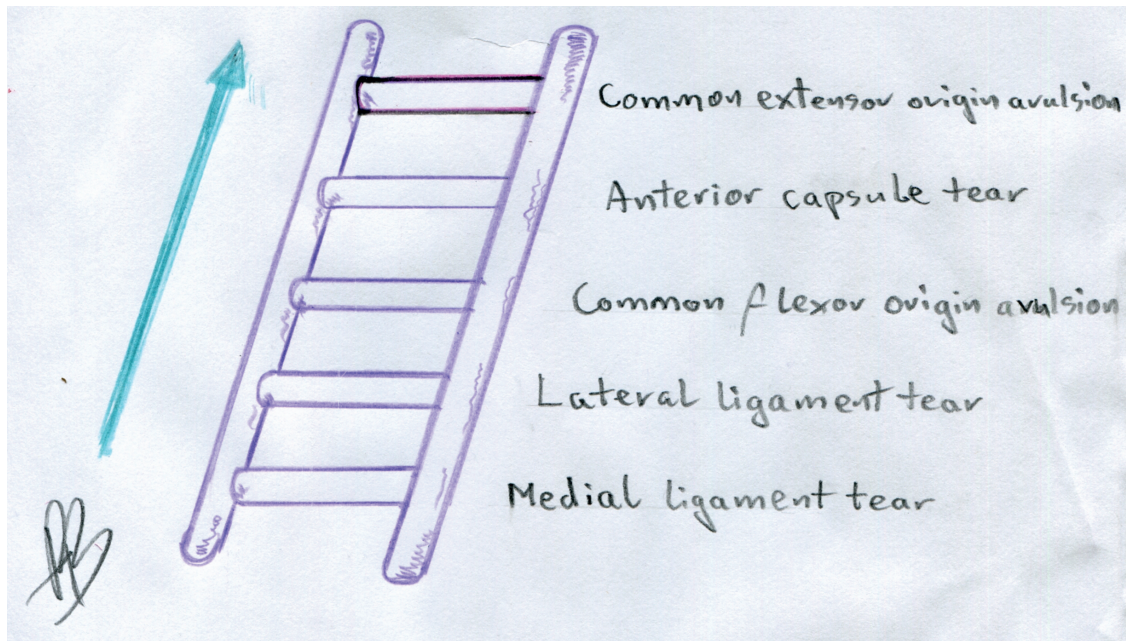 Common extensor origin avulsion
Anterior capsule tear
Common flexor origin avulsion
Lateral ligament tear
Medial ligament tear